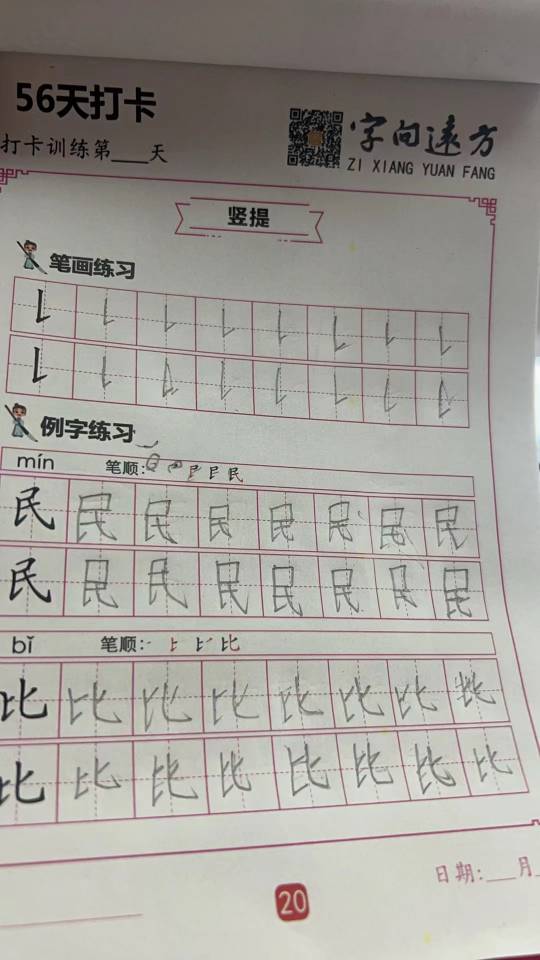 56天打卡
打卡训练第___天
字向远方
ZI XIANG YUAN FANG
竖提
笔画练习
例字练习
mín 笔顺: 民
民 民 民 民 民 民 民 民
民 民 民 民 民 民 民 民
bǐ 笔顺: 比
比 比 比 比 比 比 比 比
比 比 比 比 比 比 比 比
日期:___月
20